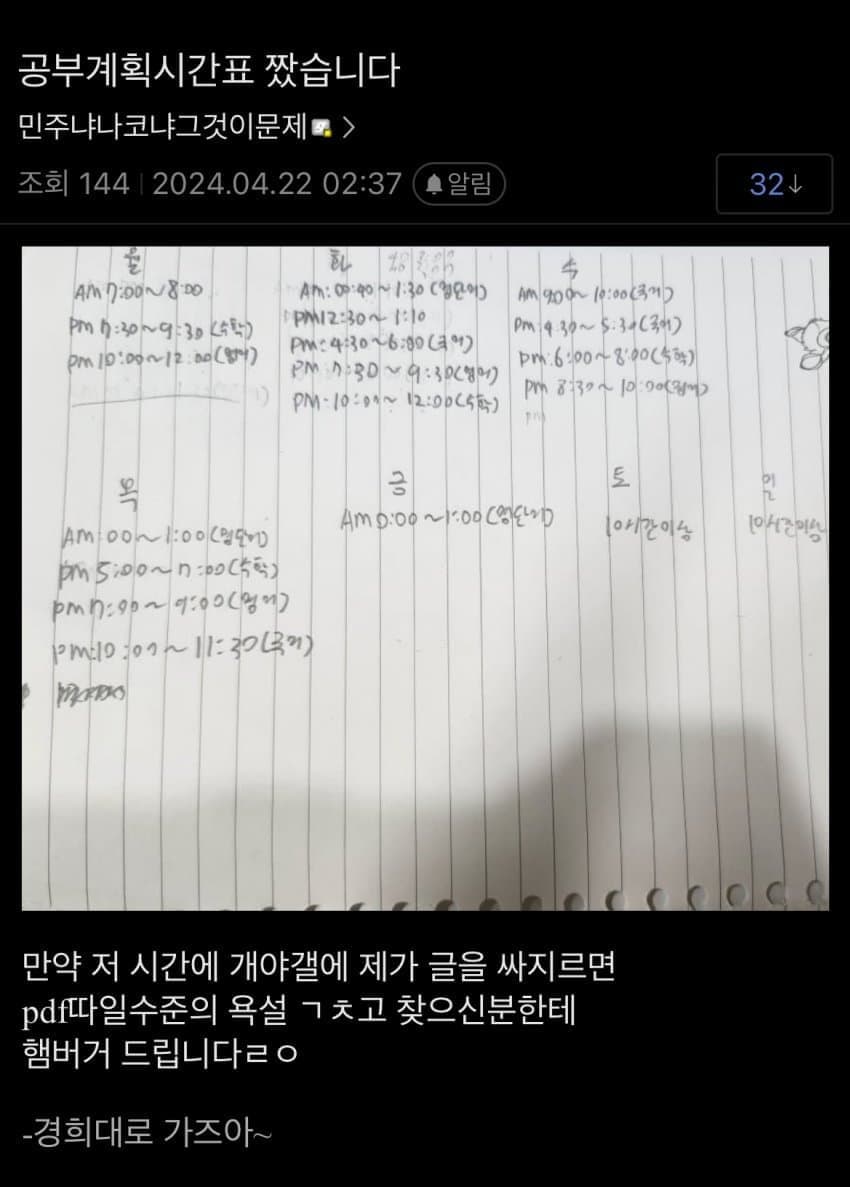 공부계획시간표 짰습니다
민주냐나코냐그것이문제
조회 144 2024.04.22 02:37 알림
32↓
월
AM 7:00~8:00
pm 7:30~9:30 (수학)
pm 10:00~12:00(영어)
화
Am: 00:40~1:30 (영단어)
pm12:30~1:10
pm: 4:30~6:00(국어)
pm 7:30~9:30(영어)
pm:10:00~12:00(수학)
수
Am 9:00~10:00(국어)
pm:4:30~5:30(국어)
pm:6:00~8:00(수학)
pm 8:30~10:00(영어)
pm
목
Am:00~1:00(영단어)
pm 5:00~7:00(수학)
pm 7:00~9:00(영어)
pm:10:00~11:30(국어)
금
Am 0:00~1:00(영단어)
토
10시간이상
일
10시간이상
만약 저 시간에 개야갤에 제가 글을 싸지르면
pdf따일수준의 욕설 ㄱㅊ고 찾으신분한테
햄버거 드립니다ㄹㅇ
-경희대로 가즈아~